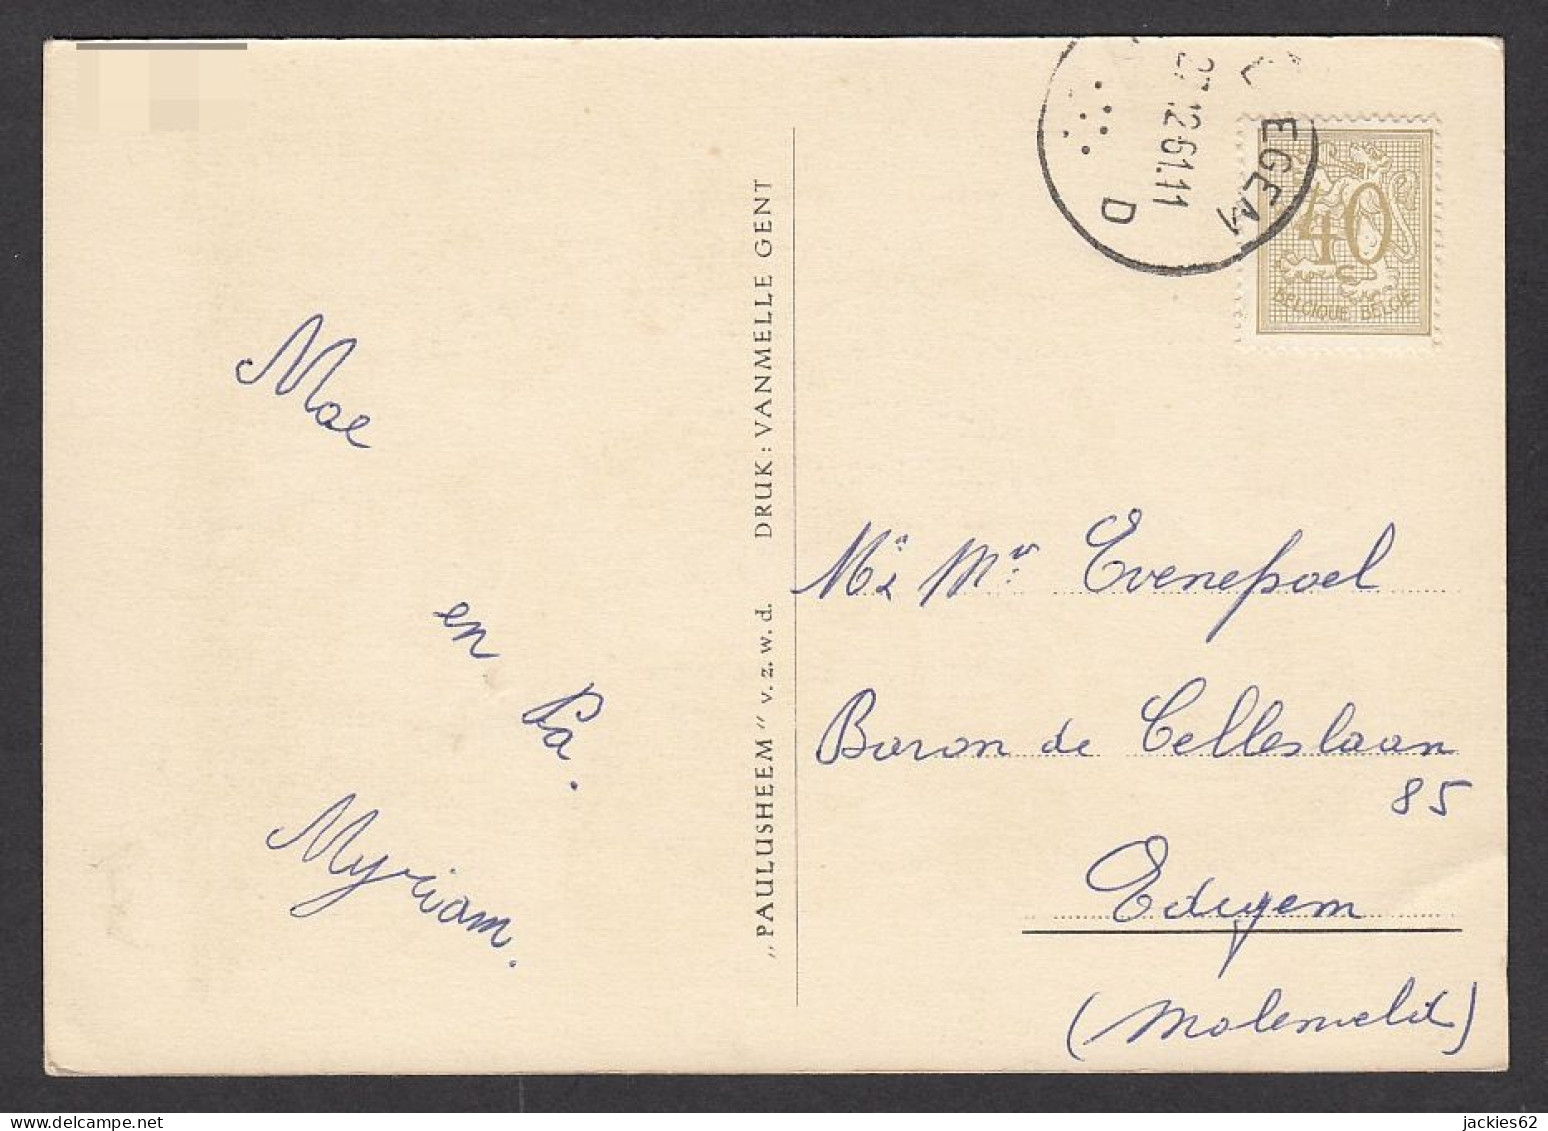 Moe
en
Pa.
Myriam.
„PAULUSHEEM” v.z.w.d. DRUK: VANMELLE GENT
EGEM
12 61.11
D
40
C
BELGIQUE BELGIË
Mr Evenepoel
Baron de Celleslaan
85
Edegem
(Molenveld)
jackies62